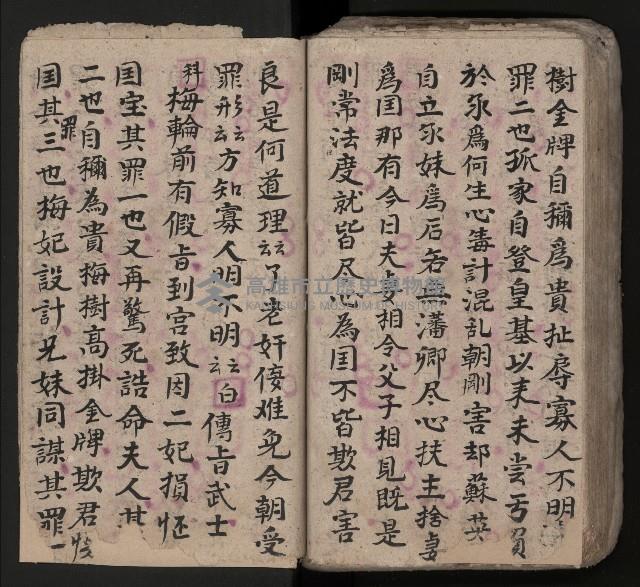 樹金牌自稱為貴扯辱寡人不明
罪二也孤家自登皇基以來未嘗亏負
於永為何生心毒計混乱朝剛害却蘇英
自立永妹為后若無潘卿尽心扶主捨妻
為国那有今日夫妻相会父子相見既是
剛常法度就皆尽心為国不皆欺君害
良是何道理云了老奸佞难免今朝受
罪形云方知寡人明不明云白傳旨武士
科梅輪前有假旨到宮致因二妃損怀
国宝其罪一也又再驚死誥命夫人其
二也自稱為貴梅樹高掛金牌欺君
国其罪三也梅妃設計兄妹同謀其罪
高雄市立歷史博物館
KAOHSIUNG MUSEUM OF HISTORY